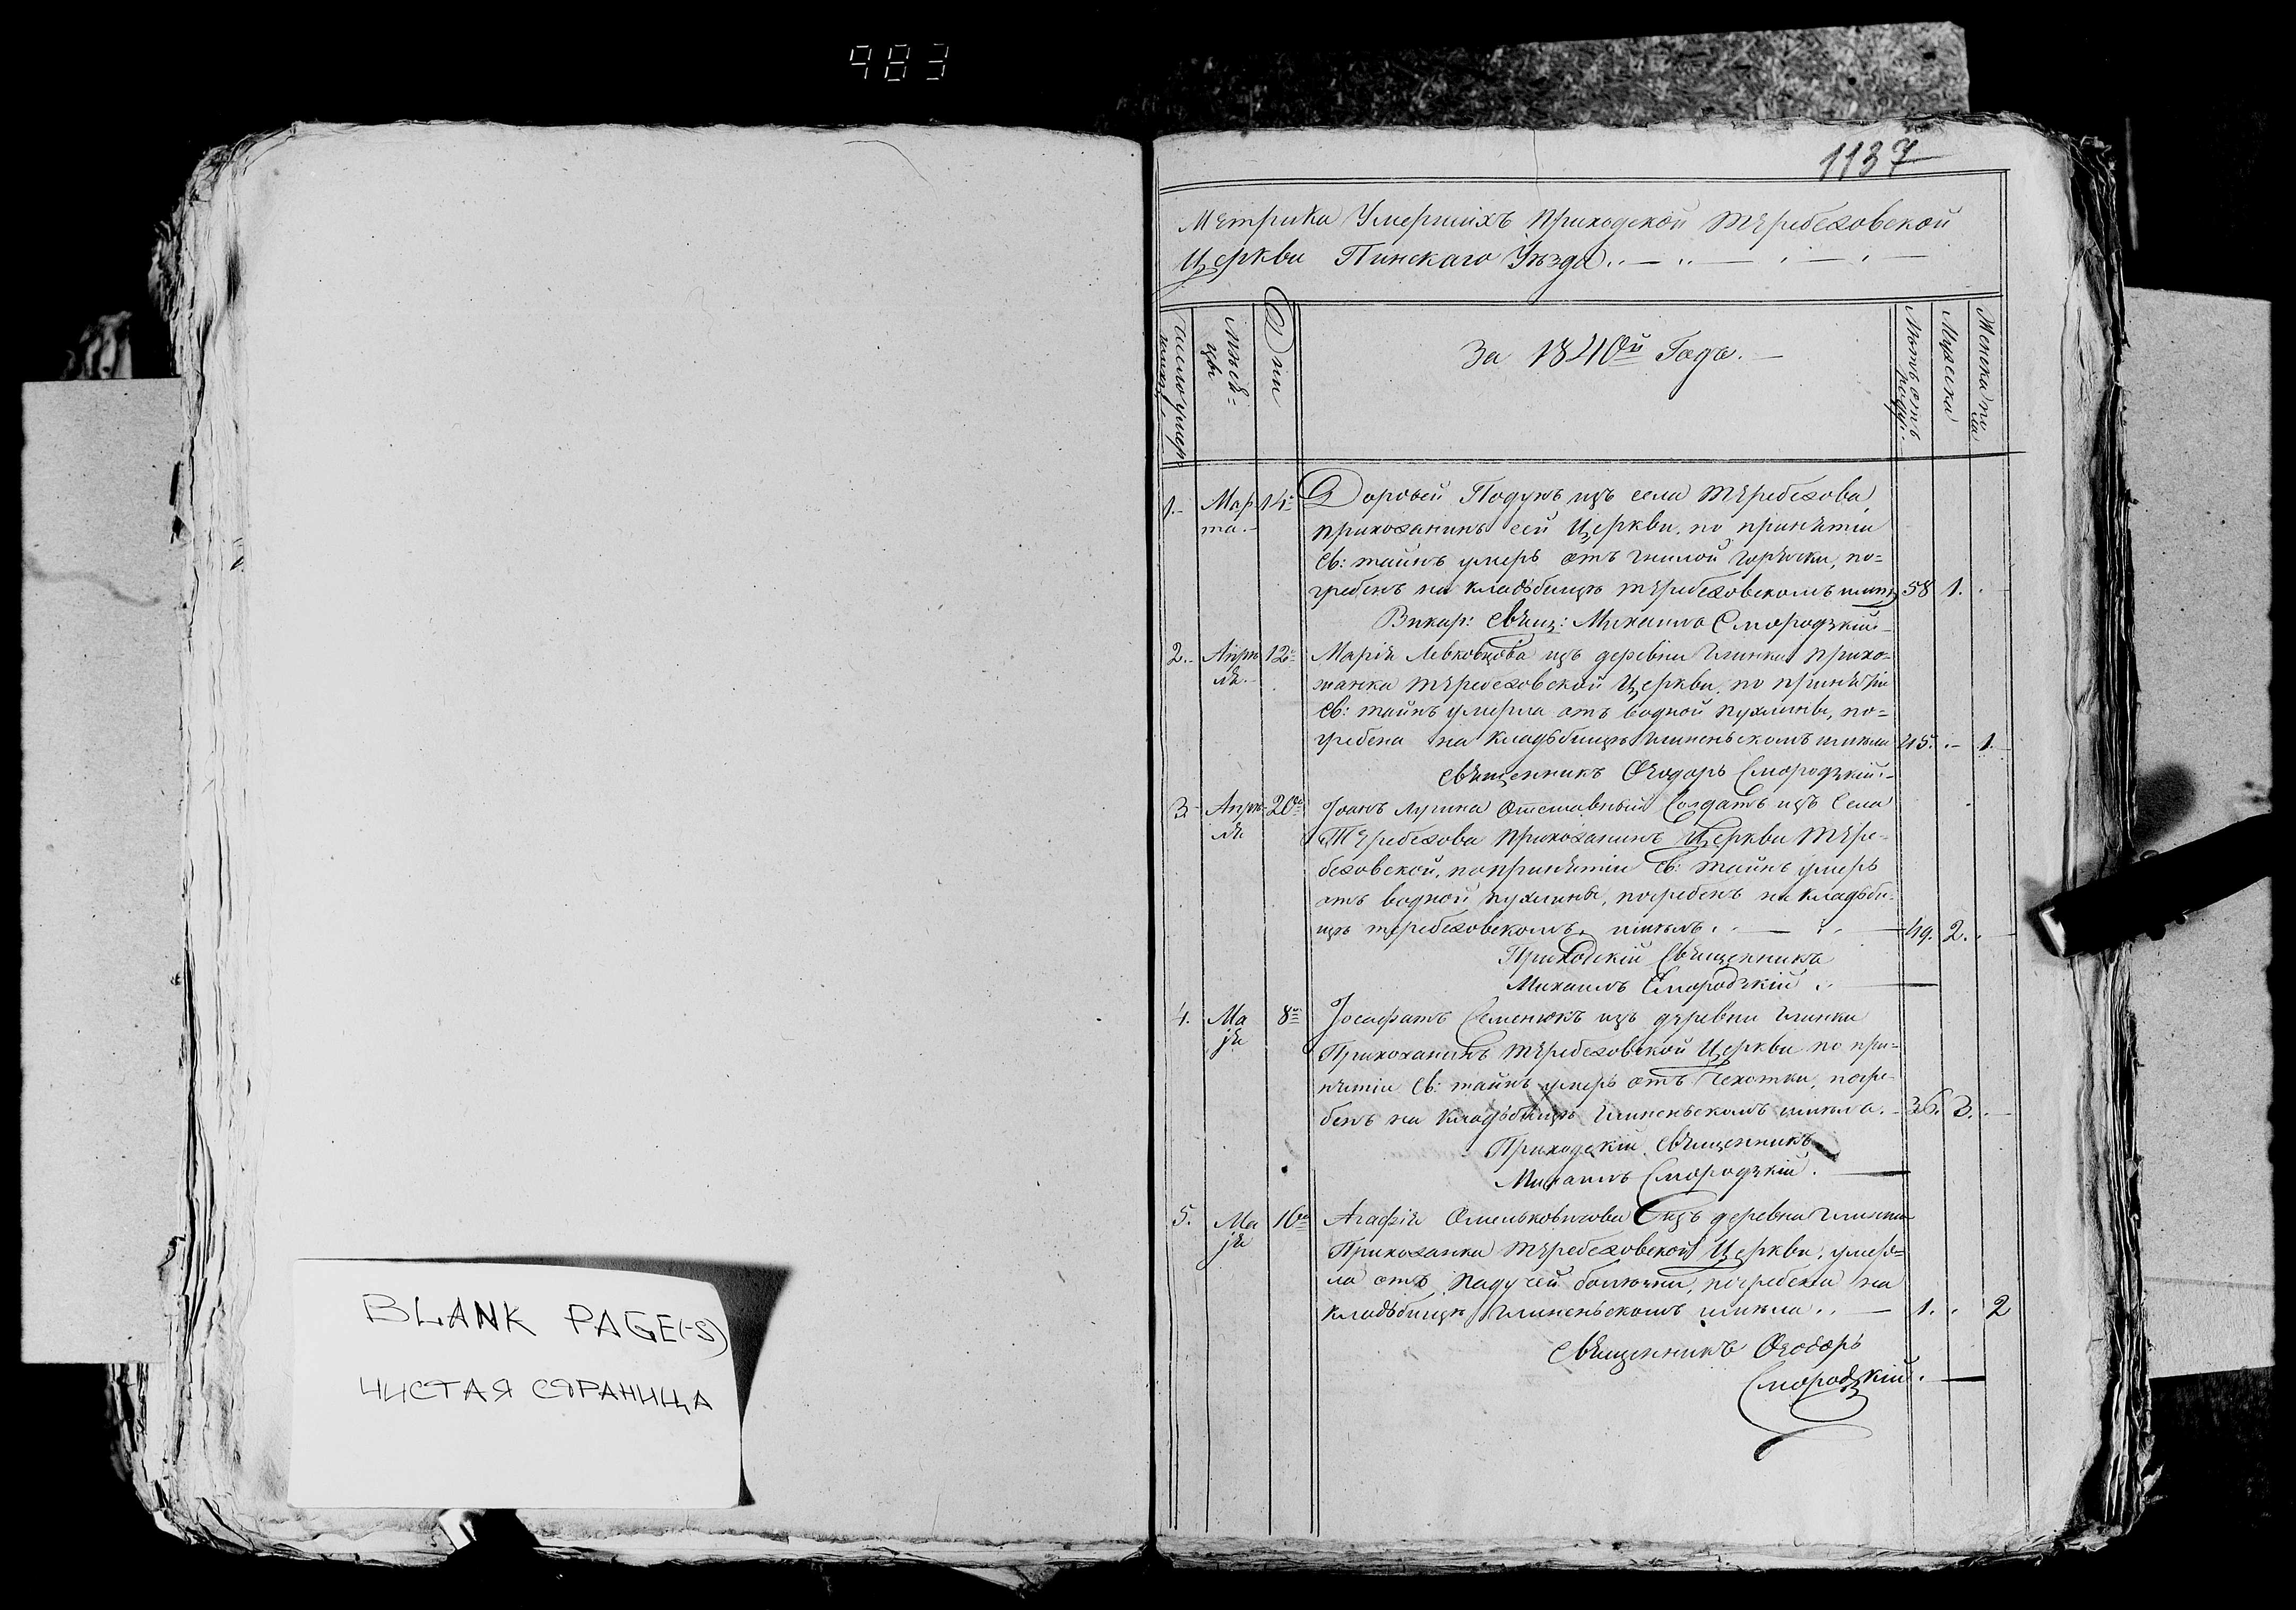 983
1137
Метрика Умершихъ Приходской Теребежовской
Церкви Пинскаго Уѣзда.
Число умер
Мѣся=
цы
Дни
За 1840ой Годъ.
Лѣтъ отъ
роду.
Мужеска
Женска по
ла
1. Мар 14. Дорофей Подукъ изъ села Теребежова
та. прихожанинъ сей Церкви, по принятіи
Св: тайнъ умеръ отъ гнилой горячки, по=
гребенъ на кладьбищѣ Теребежовскомъ 58 1.
Викар: Свящ: Михаилъ Смородзкій
2. Апрѣ 12. Марія Левковцова изъ деревни Глинки прихо=
ля. жанка Теребежовской Церкви, по принятіи
Св: тайнъ умерла отъ водной пухлины, по=
гребена на Кладьбищѣ Глиненьскомъ 45. 1.
Священникъ Ѳеодоръ Смородзкій
3. Апрѣ 20 Іоанъ Лугина Отставный Солдатъ изъ Села
ля Теребежова Прихожанинъ Церкви Тере=
бежовской, по принятіи Св: Тайнъ умеръ
отъ водной пухлины, погребенъ на Кладьби=
щѣ теребежовскомъ 49. 2.
Приходскій Священникъ
Михаилъ Смородзкій
4. Ма 8 Іосафатъ Семенюкъ изъ деревни Глинки
jя Прихожанинъ Теребежовской Церкви по при=
нятіи Св: тайнъ умеръ отъ Чехотки, погре=
бенъ на Кладьбищѣ Глиненьскомъ 36. 3.
Приходскій Священникъ
Михаилъ Смородзкій.
5. Ма 16 Агафія Омельковичова изъ деревни Глинки
jя Прихожанка Теребежовской Церкви, умер=
ла отъ падучей болючки, погребена на
кладьбищѣ Глиненьскомъ 1. 2
Священникъ Ѳеодоръ
Смородзкій.
BLANK PAGE(-S)
ЧИСТАЯ СТРАНИЦА